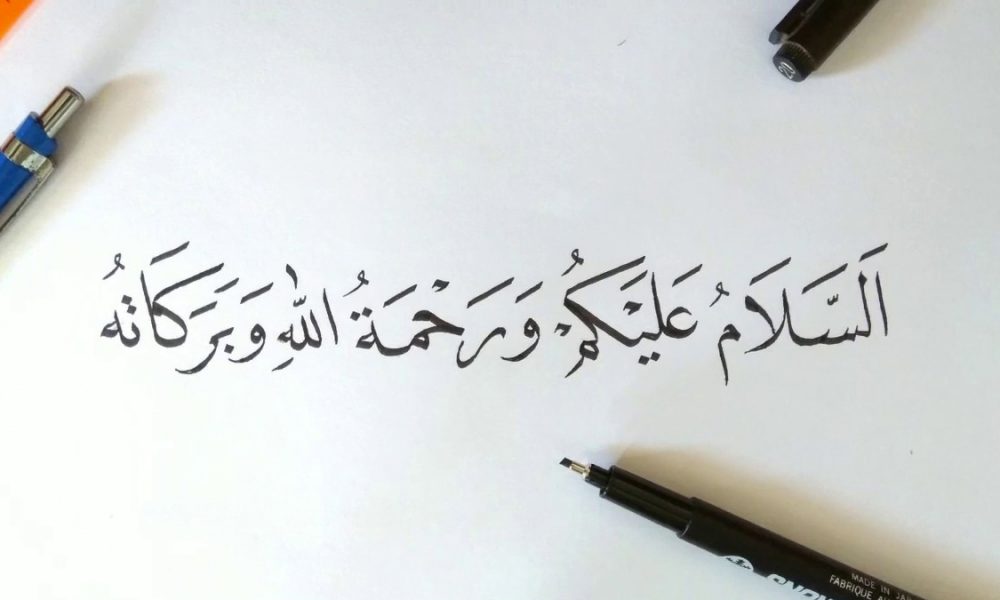 اَلسَّلَامُ عَلَيْكُمْ وَرَحْمَةُ اللهِ وَبَرَكَاتُهُ
MADE IN
FABRIQUE